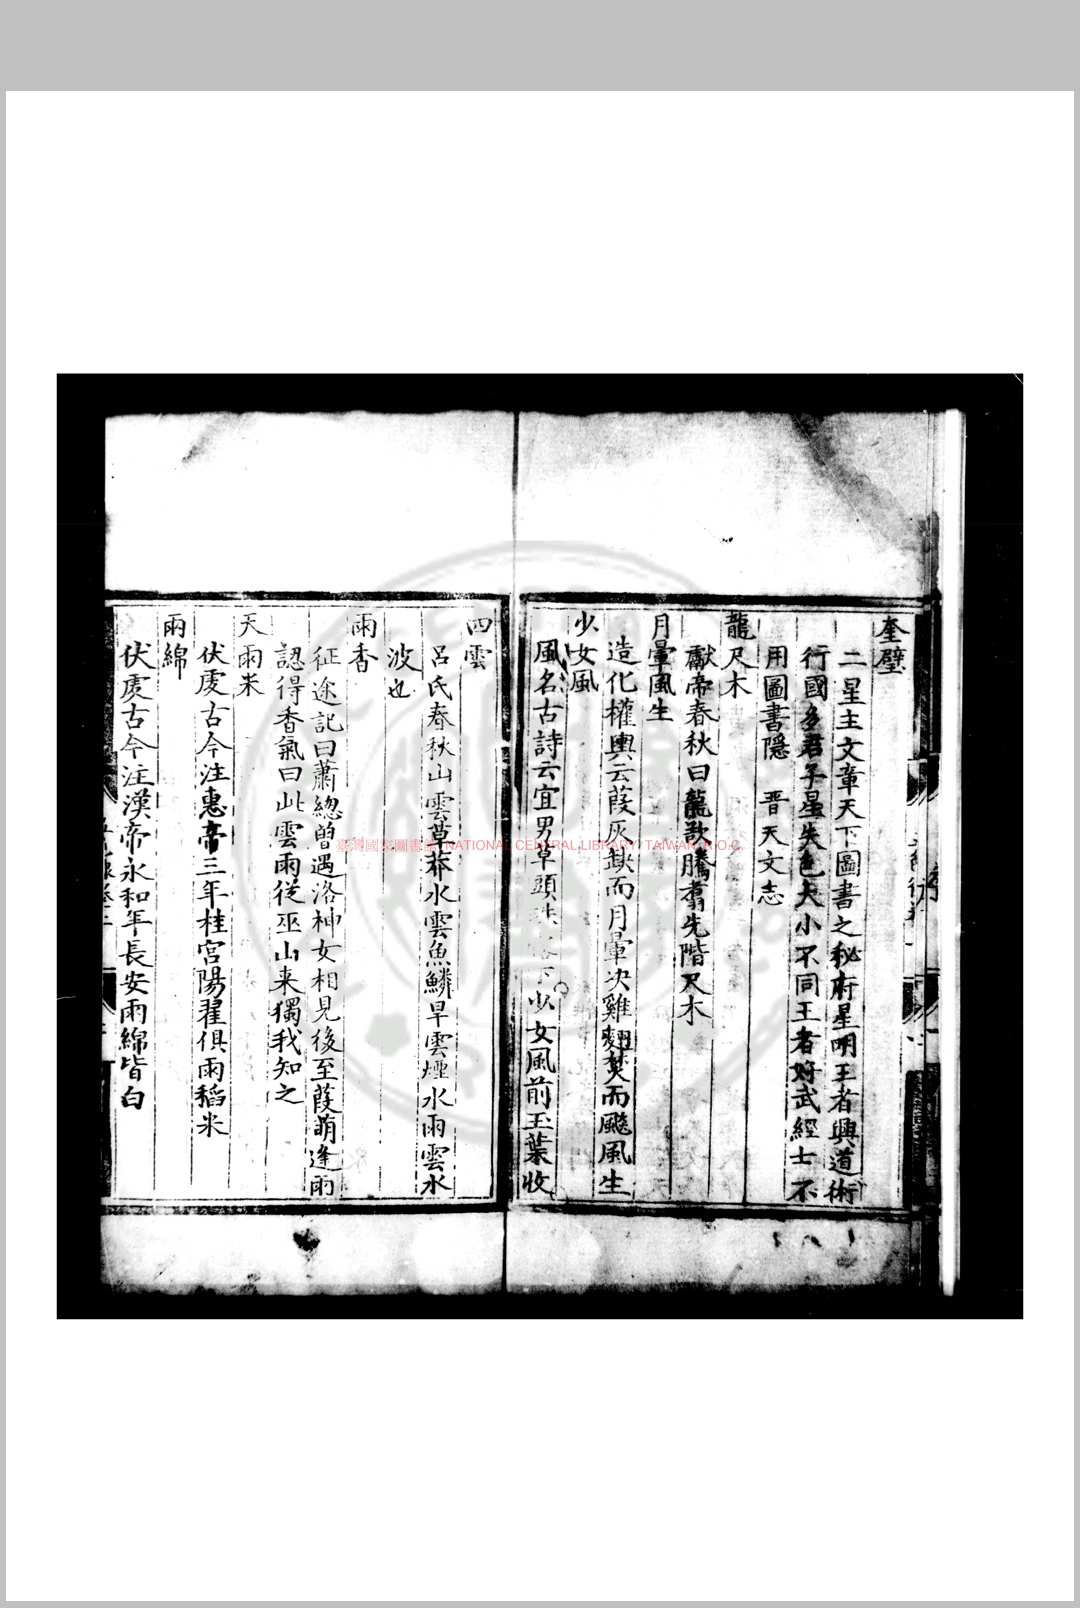 奎壁
二星主文章天下圖書之秘府星明王者興道術
行國多君子星失色大小不同王者好武經士不
用圖書隱　晋天文志
龍尺木
獻帝春秋曰龍欲騰翥先階尺木
月暈風生
造化權輿云葭灰缺而月暈决雞翅焚而颷風生
少女風
風名古詩云宜男草頭　　下少女風前玉葉收
四雲
呂氏春秋山雲草莽水雲魚鱗旱雲煙水雨雲水
波也
雨香
征途記曰蕭總曽遇洛神女相見後至葭萌逢雨
認得香氣曰此雲雨從巫山来獨我知之
天雨米
伏虔古今注惠帝三年桂宮陽翟俱雨稻米
雨綿
伏虔古今注漢帝永和年長安雨綿皆白
臺灣國家圖書館 NATIONAL CENTRAL LIBRARY, TAIWAN, R.O.C.